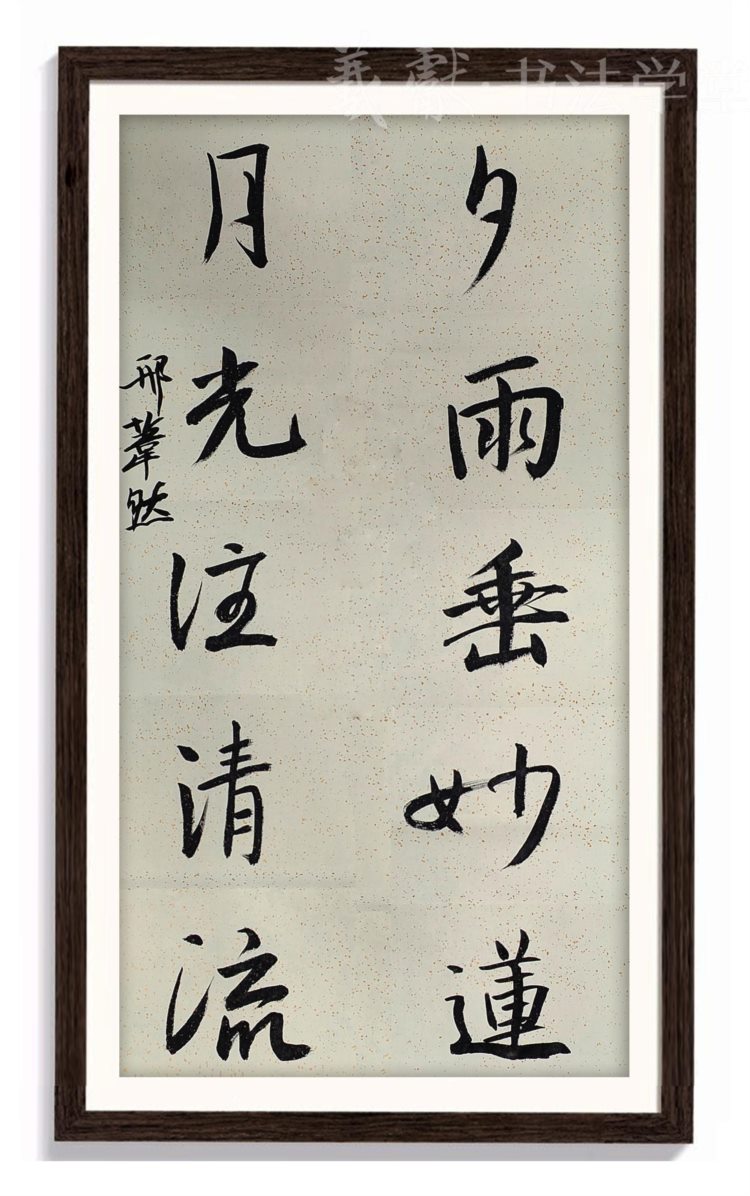 夕雨垂妙蓮
月光注清流
邢葦然
羲獻·书法学堂